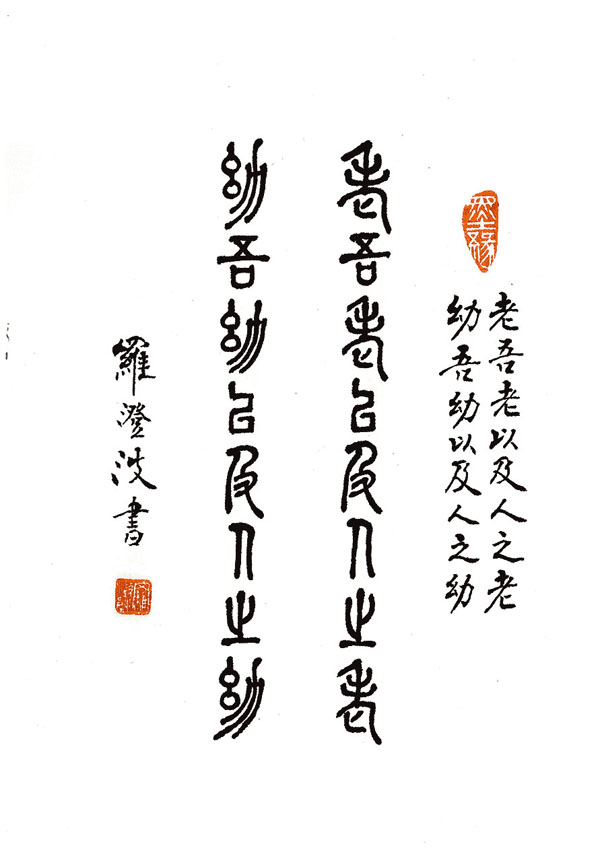 墨缘
老吾老以及人之老
幼吾幼以及人之幼
老吾老以及人之老
幼吾幼以及人之幼
羅澄波書